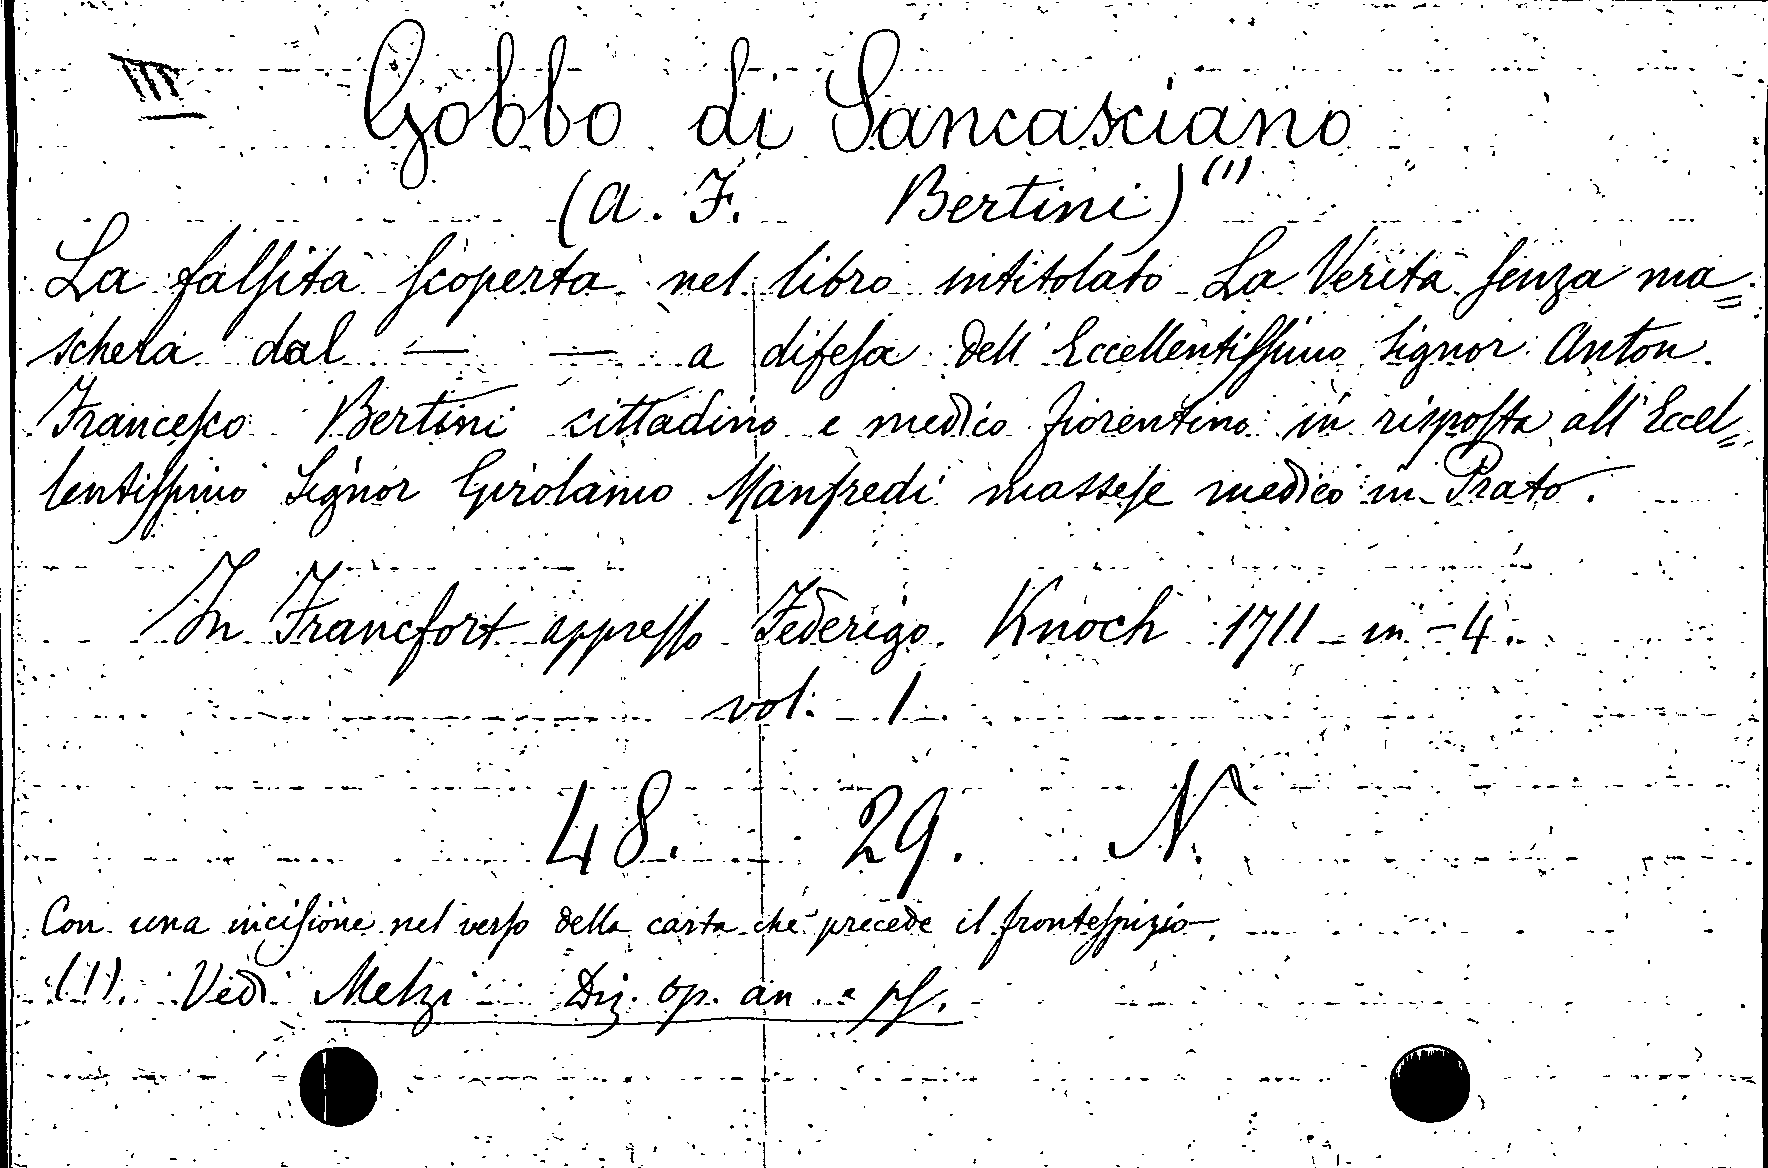 III
Gobbo di Sancasciano
(A. F. Bertini) (1)
La falsita scoperta nel libro intitolato La Verità senza ma=
schera dal — — a difesa dell' Eccellentissimo Signor Anton
Francesco Bertini cittadino e medico fiorentino in risposta all' Eccel=
lentissimo Signor Girolamo Manfredi massese medico in Prato.
In Francfort appresso Federigo Knoch 1711 in-4.
vol. 1.
48. 29. N.
Con una incisione nel verso della carta che precede il frontespizio.
(1). Vedi Melzi Diz. op. an. e ps.